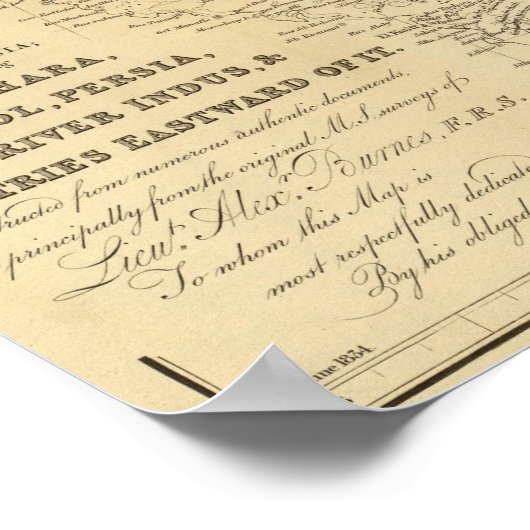 IA,
HARA,
OL, PERSIA,
RIVER INDUS, &
TRIES EASTWARD OF IT.
tructed from numerous authentic documents.
principally from the original M.S. surveys of
Lieut. Alexr. Burnes, F.R.S.
To whom this Map is
most respectfully dedicate
By his obliged
une 1834.